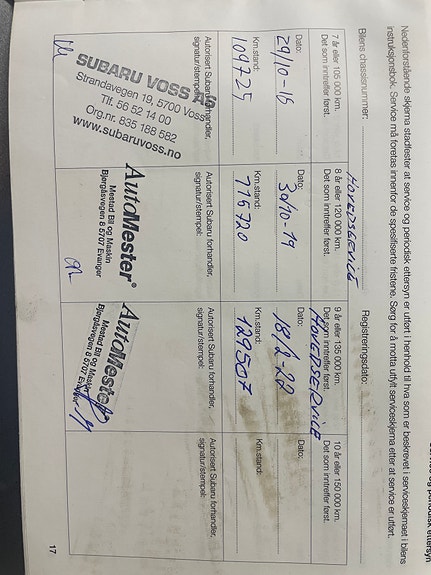 service og periodisk ettersyn
Nedenforstående skjema stadfester at service og periodisk ettersyn er utført i henhold til hva som er beskrevet i serviceskjemaet i bilens
instruksjonsbok. Service må foretas innenfor de spesifiserte fristene. Sørg for å motta utfylt serviceskjema etter at service er utført.
Bilens chassisnummer:
Registreringsdato:
7 år eller 105 000 km.
Det som inntreffer først.
Dato:
29/10-15
Km.stand:
109725
Autorisert Subaru forhandler,
signatur/stempel:
SUBARU VOSS AS
Strandavegen 19, 5700 Voss
Tlf. 56 52 14 00
Org.nr. 835 188 582
www.subaruvoss.no
HOVEDSERVICE
8 år eller 120 000 km.
Det som inntreffer først.
Dato:
30/10-19
Km.stand:
115720
Autorisert Subaru forhandler,
signatur/stempel:
AutoMester®
Mestad Bil og Maskin
Bjørgåsvegen 8 5707 Evanger
9 år eller 135 000 km.
Det som inntreffer først.
HOVEDSERVICE
Dato:
18/2-22
Km.stand:
129507
Autorisert Subaru forhandler,
signatur/stempel:
AutoMester®
Mestad Bil og Maskin
Bjørgåsvegen 8 5707 Evanger
10 år eller 150 000 km.
Det som inntreffer først.
Dato:
Km.stand:
Autorisert Subaru forhandler,
signatur/stempel:
17